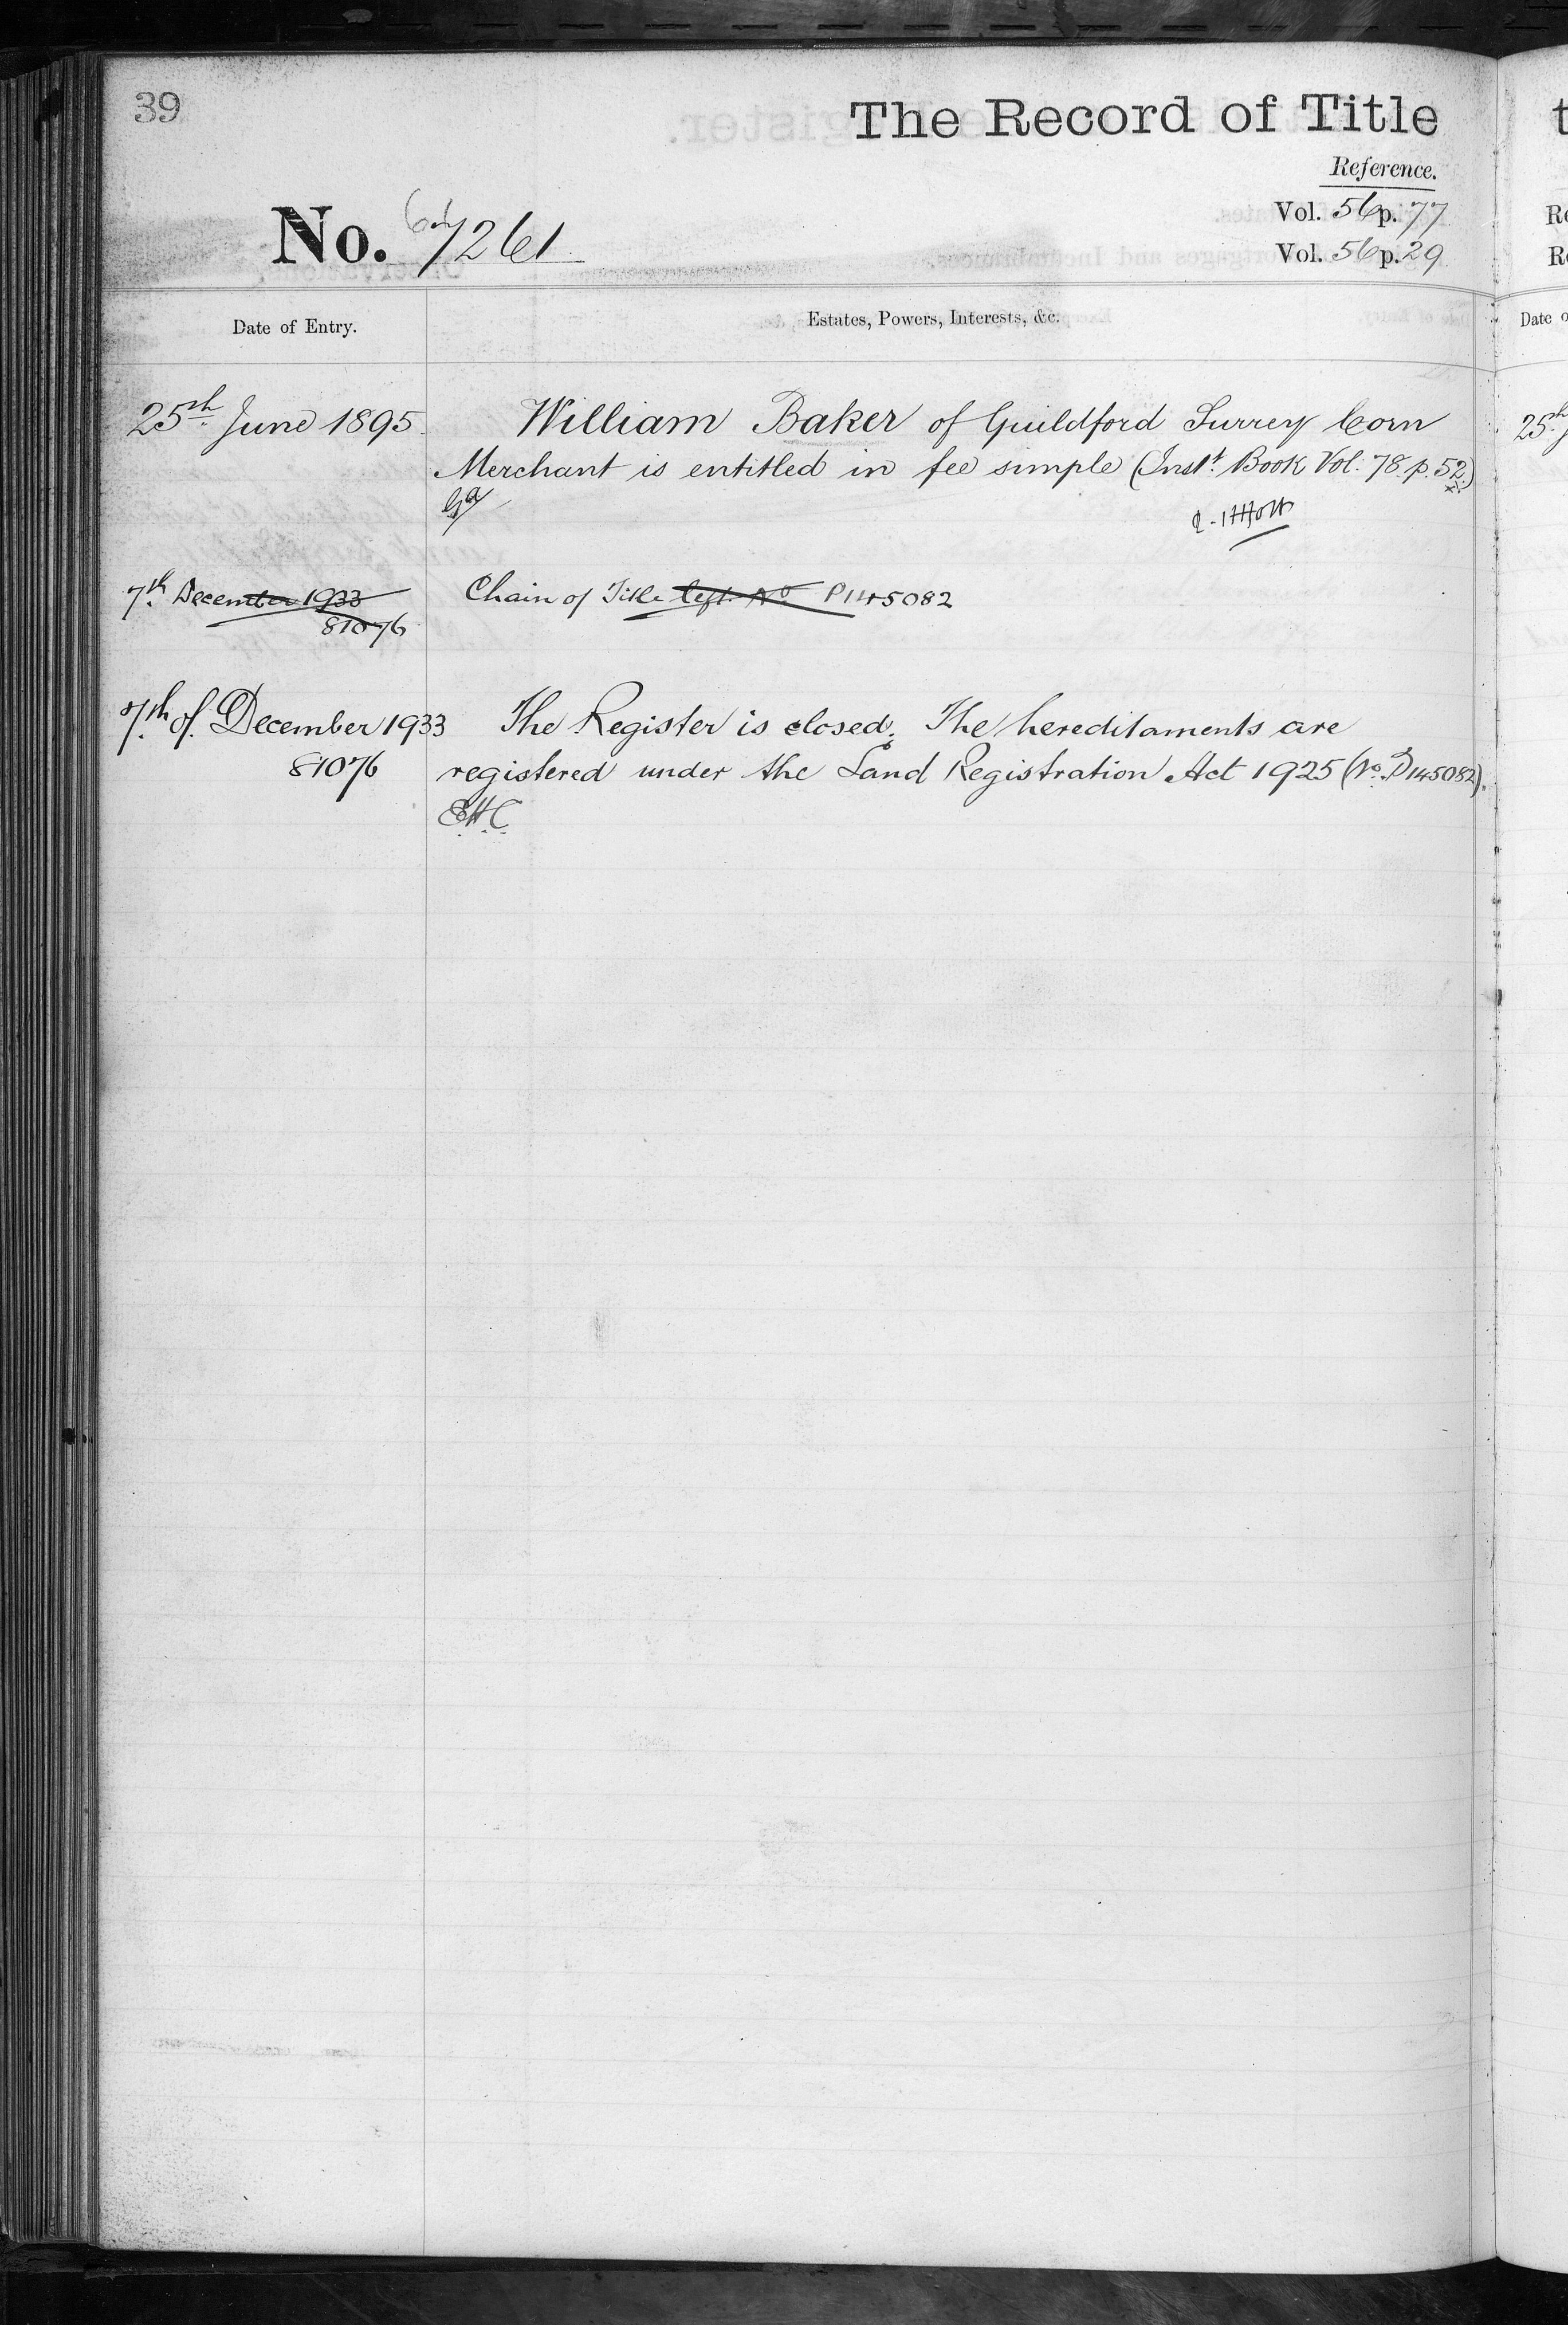 39
The Record of Title
Reference.
No. 7261
Vol. 56 p. 77
Vol. 56 p. 29
Date of Entry.
Estates, Powers, Interests, &c.
25th June 1895
William Baker of Guildford Surrey Corn
Merchant is entitled in fee simple (Inst. Book Vol. 78. p. 52.)
7th December 1933
81076
Chain of Title left No P145082
7th of December 1933
81076
The Register is closed. The hereditaments are
registered under the Land Registration Act 1925 (No. P145082).
E.H.C.
Date o
25th J